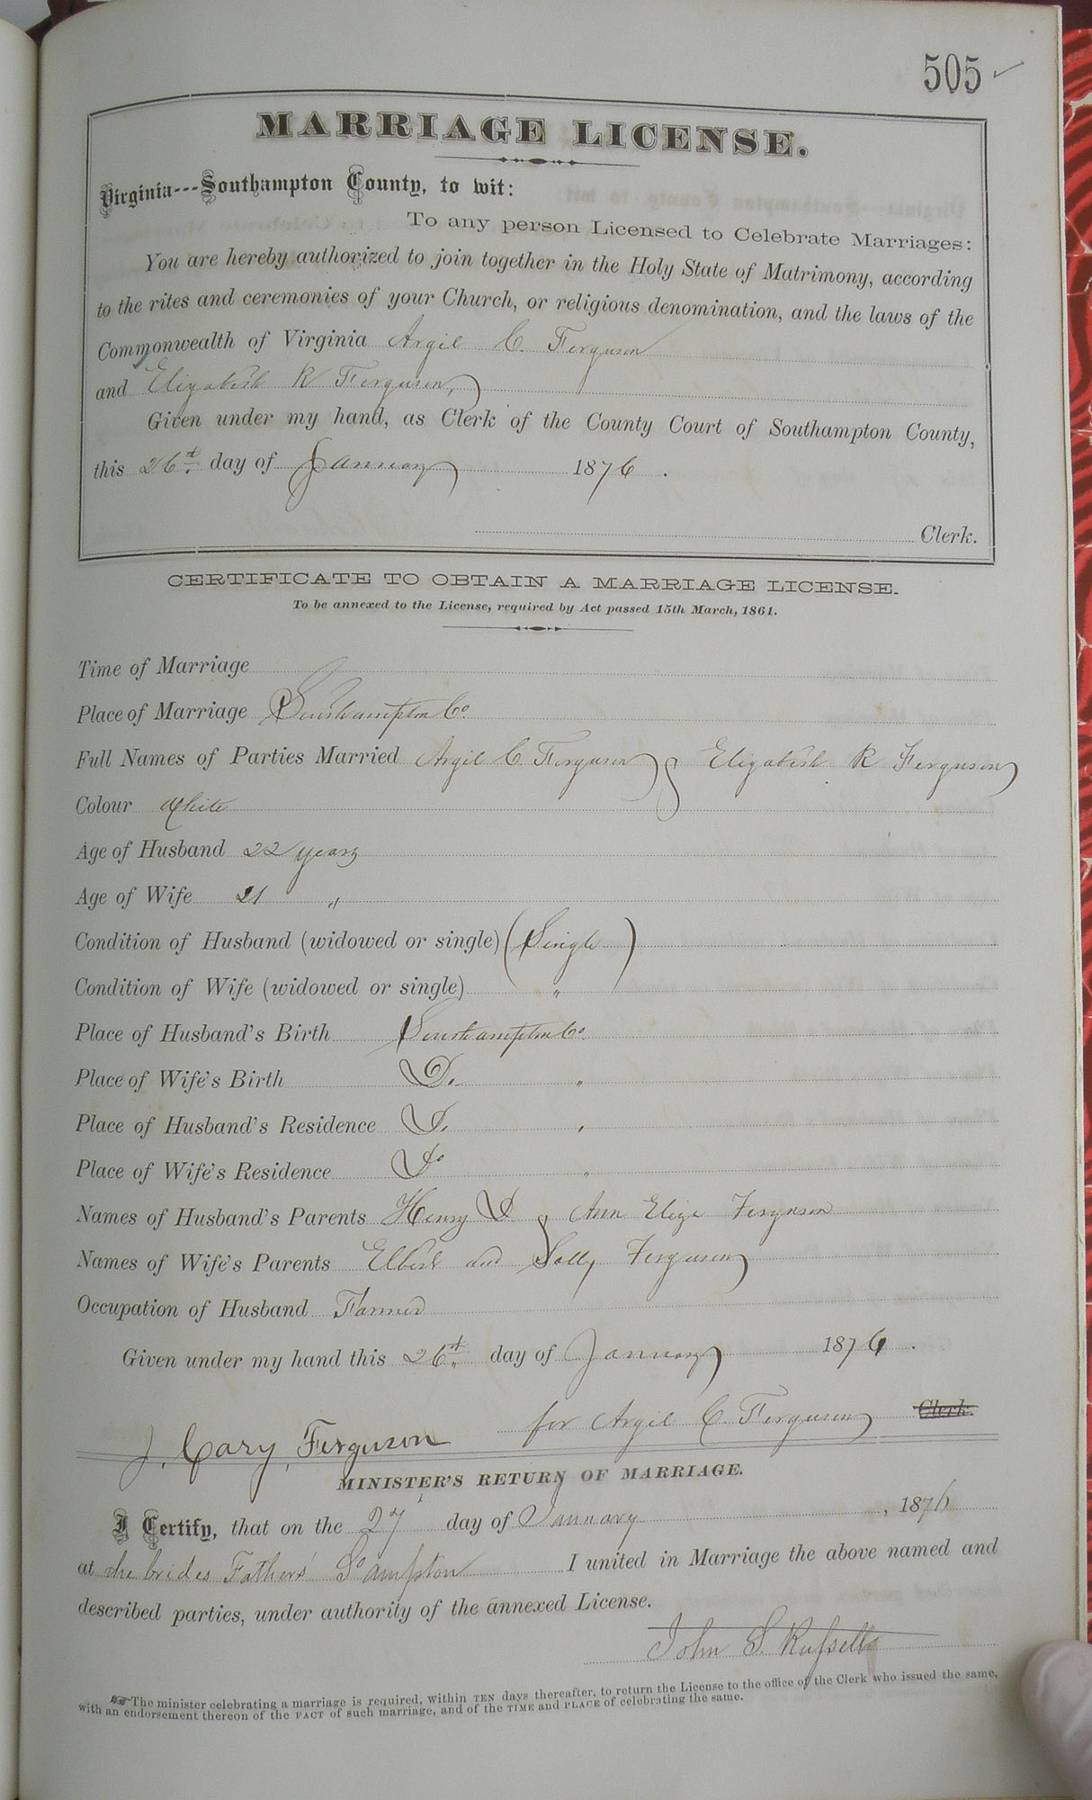 505 ✓
MARRIAGE LICENSE.
Virginia---Southampton County, to wit:
To any person Licensed to Celebrate Marriages:
You are hereby authorized to join together in the Holy State of Matrimony, according
to the rites and ceremonies of your Church, or religious denomination, and the laws of the
Commonwealth of Virginia Argil C. Ferguson
and Elizabeth R Ferguson,
Given under my hand, as Clerk of the County Court of Southampton County,
this 26th day of January 1876.
Clerk.
CERTIFICATE TO OBTAIN A MARRIAGE LICENSE.
To be annexed to the License, required by Act passed 15th March, 1861.
Time of Marriage
Place of Marriage Southampton Co.
Full Names of Parties Married Argil C Ferguson & Elizabeth R Ferguson
Colour White
Age of Husband 22 years
Age of Wife 21 "
Condition of Husband (widowed or single) (Single)
Condition of Wife (widowed or single) "
Place of Husband's Birth Southampton Co.
Place of Wife's Birth Do. "
Place of Husband's Residence Do. "
Place of Wife's Residence Do "
Names of Husband's Parents Henry D & Ann Eliza Ferguson
Names of Wife's Parents Elbert and Sally Ferguson
Occupation of Husband Farmer
Given under my hand this 26th day of January 1876.
for Argil C Ferguson Clerk.
J. Cary Ferguson
MINISTER'S RETURN OF MARRIAGE.
I Certify, that on the 27 day of January, 1876
at the brides Fathers' S.ampton I united in Marriage the above named and
described parties, under authority of the annexed License.
John S. Russell
The minister celebrating a marriage is required, within TEN days thereafter, to return the License to the office of the Clerk who issued the same,
with an endorsement thereon of the FACT of such marriage, and of the TIME and PLACE of celebrating the same.